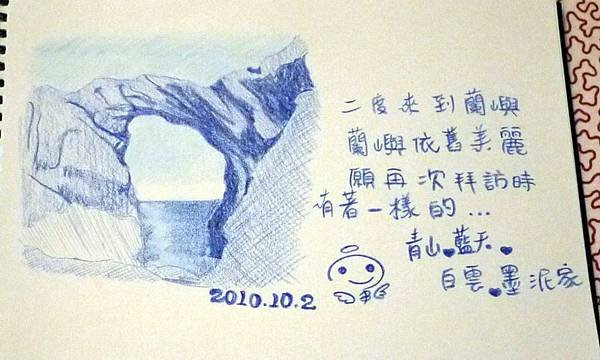 二度來到蘭嶼
蘭嶼依舊美麗
願再次拜訪時
有著一樣的...
青山 藍天
白雲 墨泥家
2010.10.2